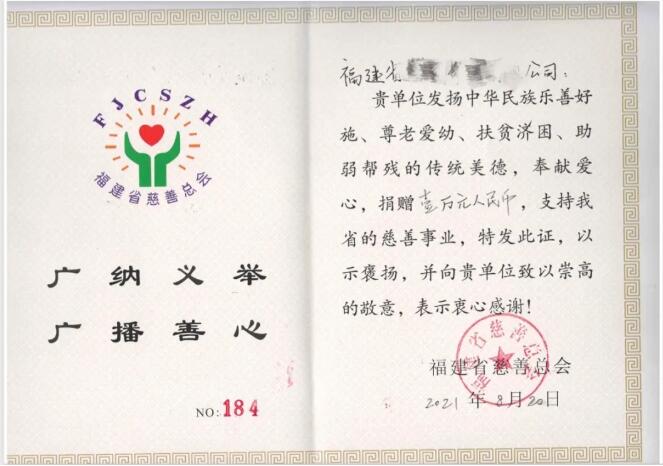 FJCSZH
福建省慈善总会
广纳义举
广播善心
NO: 184
福建省 公司:
贵单位发扬中华民族乐善好
施、尊老爱幼、扶贫济困、助
弱帮残的传统美德,奉献爱
心,捐赠壹万元人民币,支持我
省的慈善事业,特发此证,以
示褒扬,并向贵单位致以崇高
的敬意,表示衷心感谢!
福建省慈善总会
福建省慈善总会
2021年8月20日